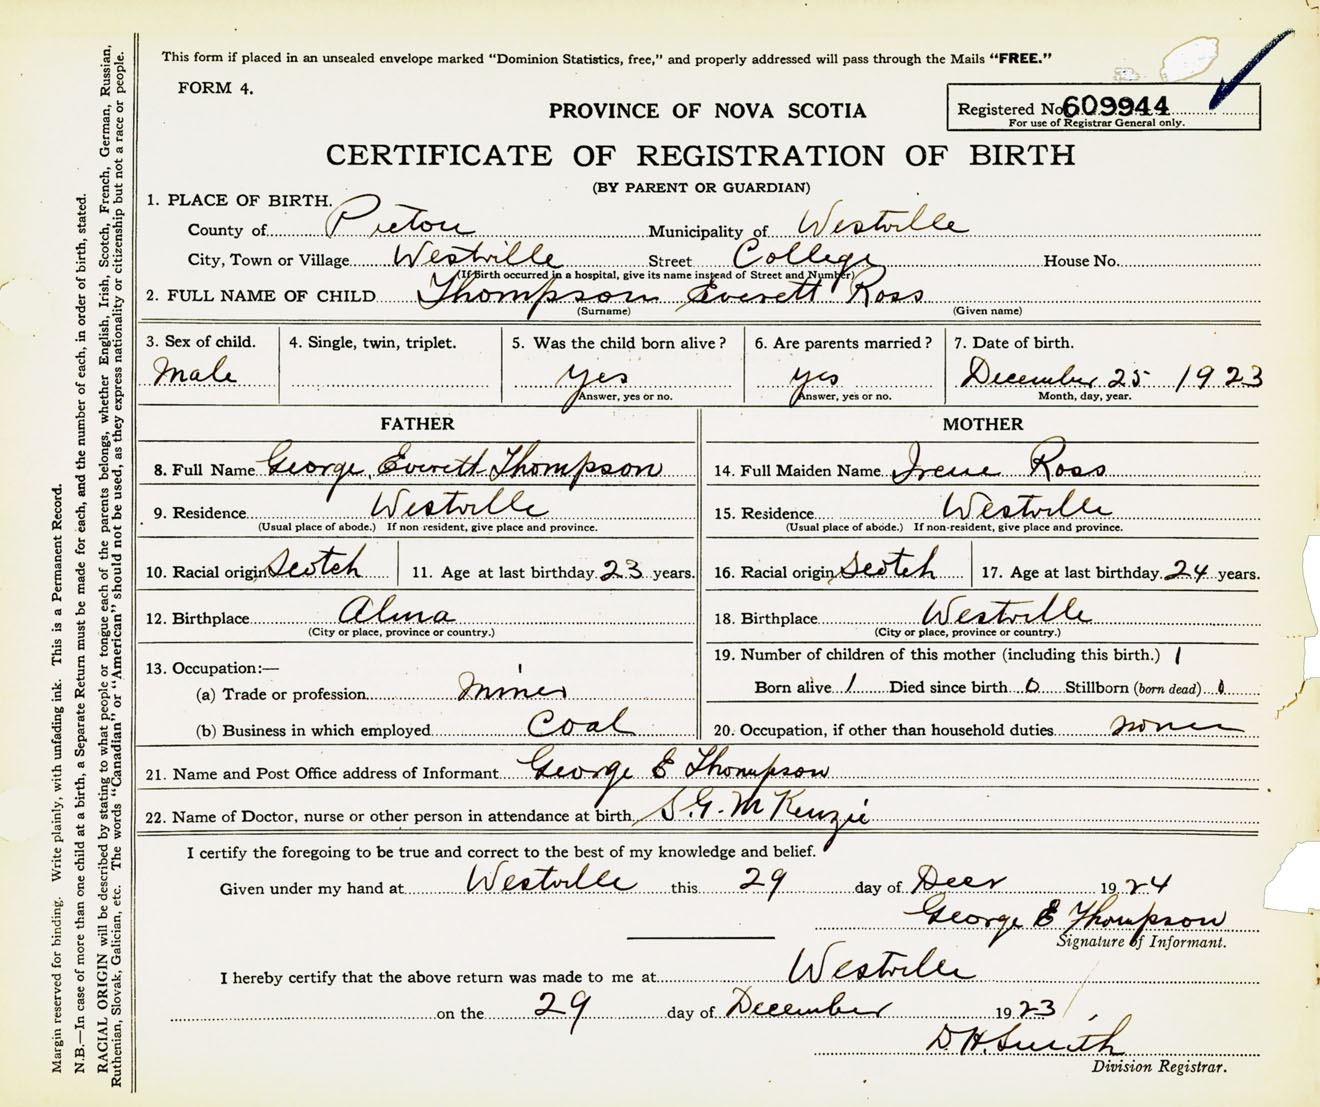 This form if placed in an unsealed envelope marked "Dominion Statistics, free," and properly addressed will pass through the Mails "FREE."
FORM 4.
PROVINCE OF NOVA SCOTIA
Registered No. 609944
For use of Registrar General only.
CERTIFICATE OF REGISTRATION OF BIRTH
(BY PARENT OR GUARDIAN)
1. PLACE OF BIRTH.
County of Pictou Municipality of Westville
City, Town or Village Westville Street College House No.
(If birth occurred in a hospital, give its name instead of Street and Number)
2. FULL NAME OF CHILD Thompson Everett Ross
(Surname) (Given name)
3. Sex of child. 4. Single, twin, triplet. 5. Was the child born alive? 6. Are parents married? 7. Date of birth.
Male yes yes December 25 1923
Answer, yes or no. Answer, yes or no. Month, day, year.
FATHER MOTHER
8. Full Name George Everett Thompson 14. Full Maiden Name Irene Ross
9. Residence Westville 15. Residence Westville
(Usual place of abode.) If non-resident, give place and province. (Usual place of abode.) If non-resident, give place and province.
10. Racial origin Scotch 11. Age at last birthday 23 years. 16. Racial origin Scotch 17. Age at last birthday 24 years.
12. Birthplace Alma 18. Birthplace Westville
(City or place, province or country.) (City or place, province or country.)
13. Occupation:— 19. Number of children of this mother (including this birth.) 1
(a) Trade or profession Miner Born alive 1 Died since birth 0 Stillborn (born dead)
(b) Business in which employed Coal 20. Occupation, if other than household duties
21. Name and Post Office address of Informant George E Thompson
22. Name of Doctor, nurse or other person in attendance at birth S. G. McKenzie
I certify the foregoing to be true and correct to the best of my knowledge and belief.
Given under my hand at Westville this 29 day of 1924
George E Thompson
Signature of Informant.
I hereby certify that the above return was made to me at Westville
on the 29 day of December 1923
D. H. Smith
Division Registrar.
Margin reserved for binding. Write plainly, with unfading ink. This is a Permanent Record.
N.B.—In case of more than one child at a birth, a Separate Return must be made for each, and the number of each, in order of birth, stated.
RACIAL ORIGIN will be described by stating to what people or tongue each of the parents belongs, whether English, Irish, Scotch, French, German, Russian,
Ruthenian, Slovak, Galician, etc. The words "Canadian" or "American" should not be used, as they express nationality or citizenship but not a race or people.